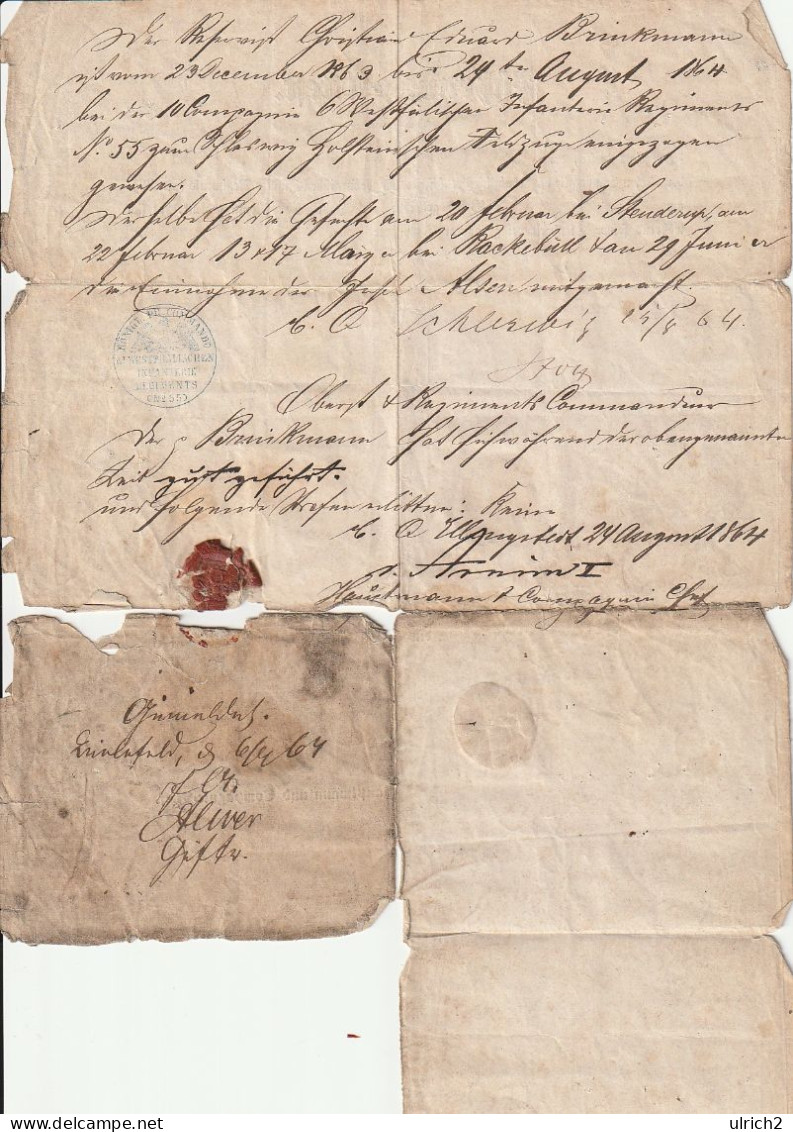 Der Reservist Christian Eduard Brinkmann
ist vom 23 December 1863 bis 24ten August 1864
bei der 10 Compagnie 6 Westfälischen Infanterie Regiments
No 55 zum Schleswig Holsteinischen Feldzuge eingezogen
gewesen.
Derselbe hat die Gefechte am 20 Februar bei Stenderup, am
22 Februar 13 & 17 März bei Rackebüll & am 29 Juni
die Einnahme der Insel Alsen mitgemacht.
C. Q Schleswig 25/8 64.
KÖNIGL. PR. COMMANDO
6 WESTFÄLISCHES
INFANTERIE
REGIMENTS
(No 55)
Oberst & Regiments Commandeur
Der p Brinkmann hat sich während der obengenannten
Zeit gut geführt.
und folgende Strafen erlitten: Keine
C. Q 24 August 1864
v. Arnim I
Hauptmann & Compagnie Chef
Gemeldet.
Bielefeld, d 64
Geftr.
ulrich2